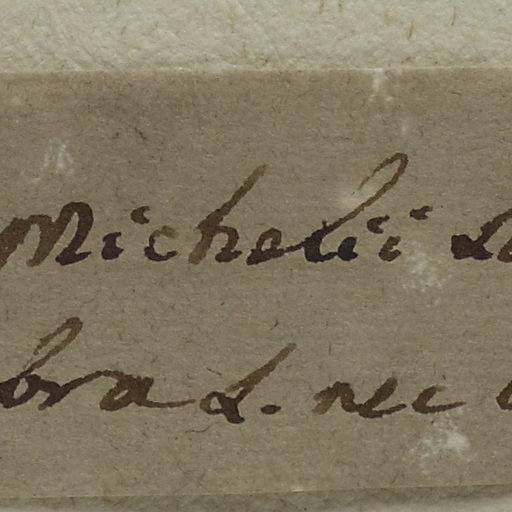 Michelii
bra L. nec